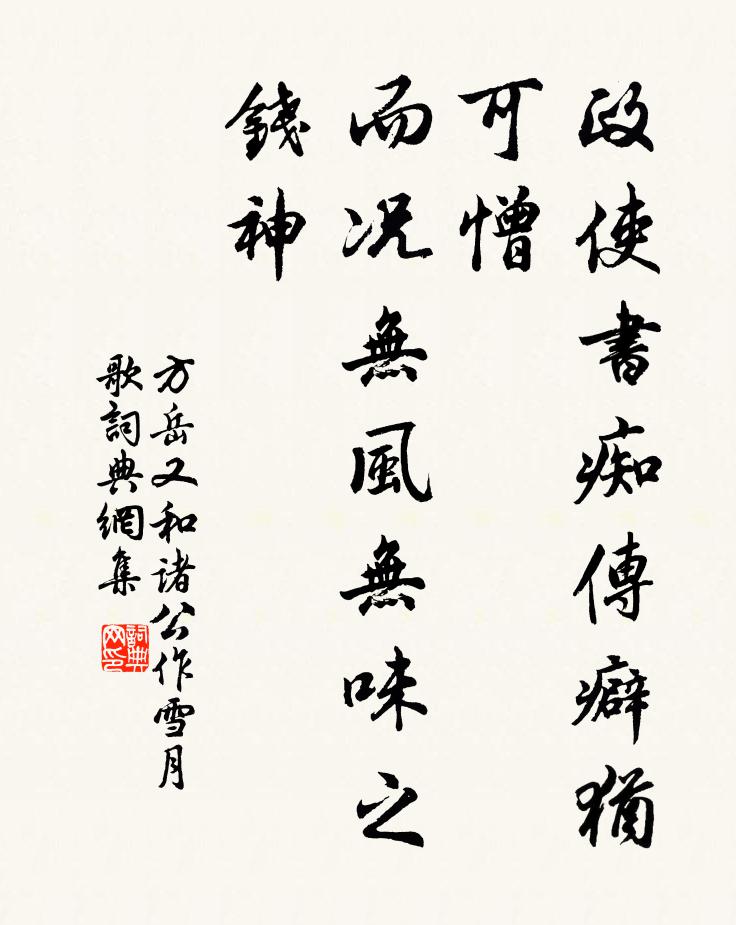 政使書痴傳癖猶
可憎
而况無風無味之
錢神
方岳又和諸公作雪月
歌詞典網集
詞典網印